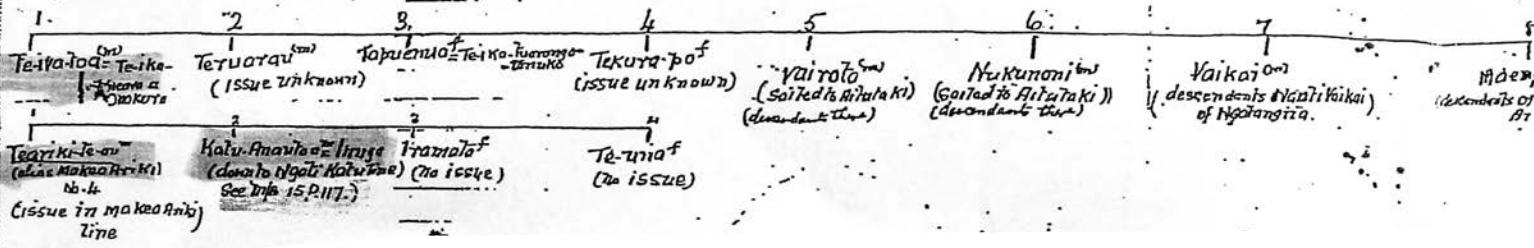 1. 2 3. 4 5 6. 7 8
Te-iva-toa(m) = Te-ika-
Omokura
Teruarau(m)
(issue unknown)
Tapuenua f = Te-ika-tuaronga-
Tekura-po f
(issue unknown)
Vairoto (m)
(Sailed to Aitutaki)
(descendant there)
Nukunoni (m)
(Sailed to Aitutaki)
(descendant there)
Vaikai (m)
(descendents Ngati Vaikai)
of Ngatangiia.
(descendents of
1 2 3 4
Teariki-te-au m
(alias Makea Ariki)
No. 4
(issue in makea Ariki)
line
(down to Ngati Katu Tne)
See M/s 15.P.117.)
f
(no issue)
Te-unia f
(no issue)